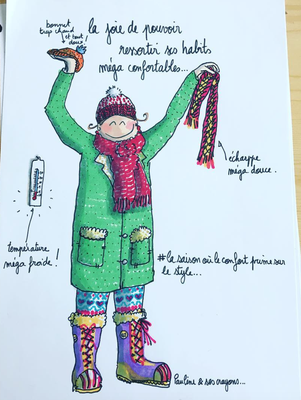 bonnet
trop chaud
et tout
doux!
la joie de pouvoir
ressortir ses habits
méga confortables...
écharpe
méga douce.
température
méga froide!
#la saison où le confort prime sur
le style...
Pauline & ses crayons...